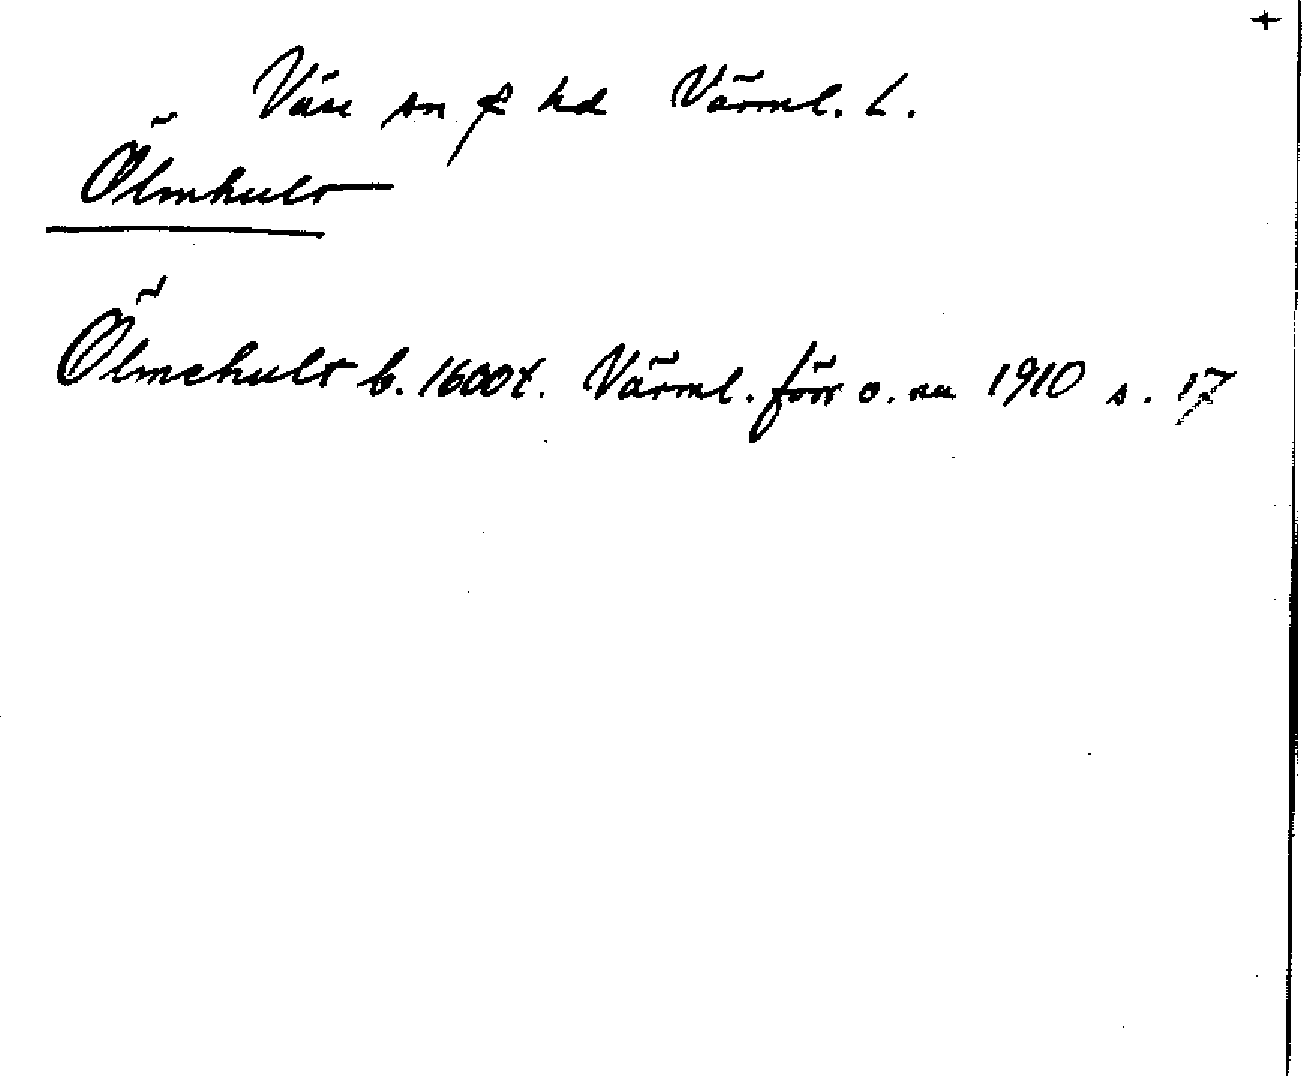 +
Väse sn f hd Värml. L.
Ölmhult
Ölmehult b. 1600t. Värml. förr o. nu 1910 s. 17